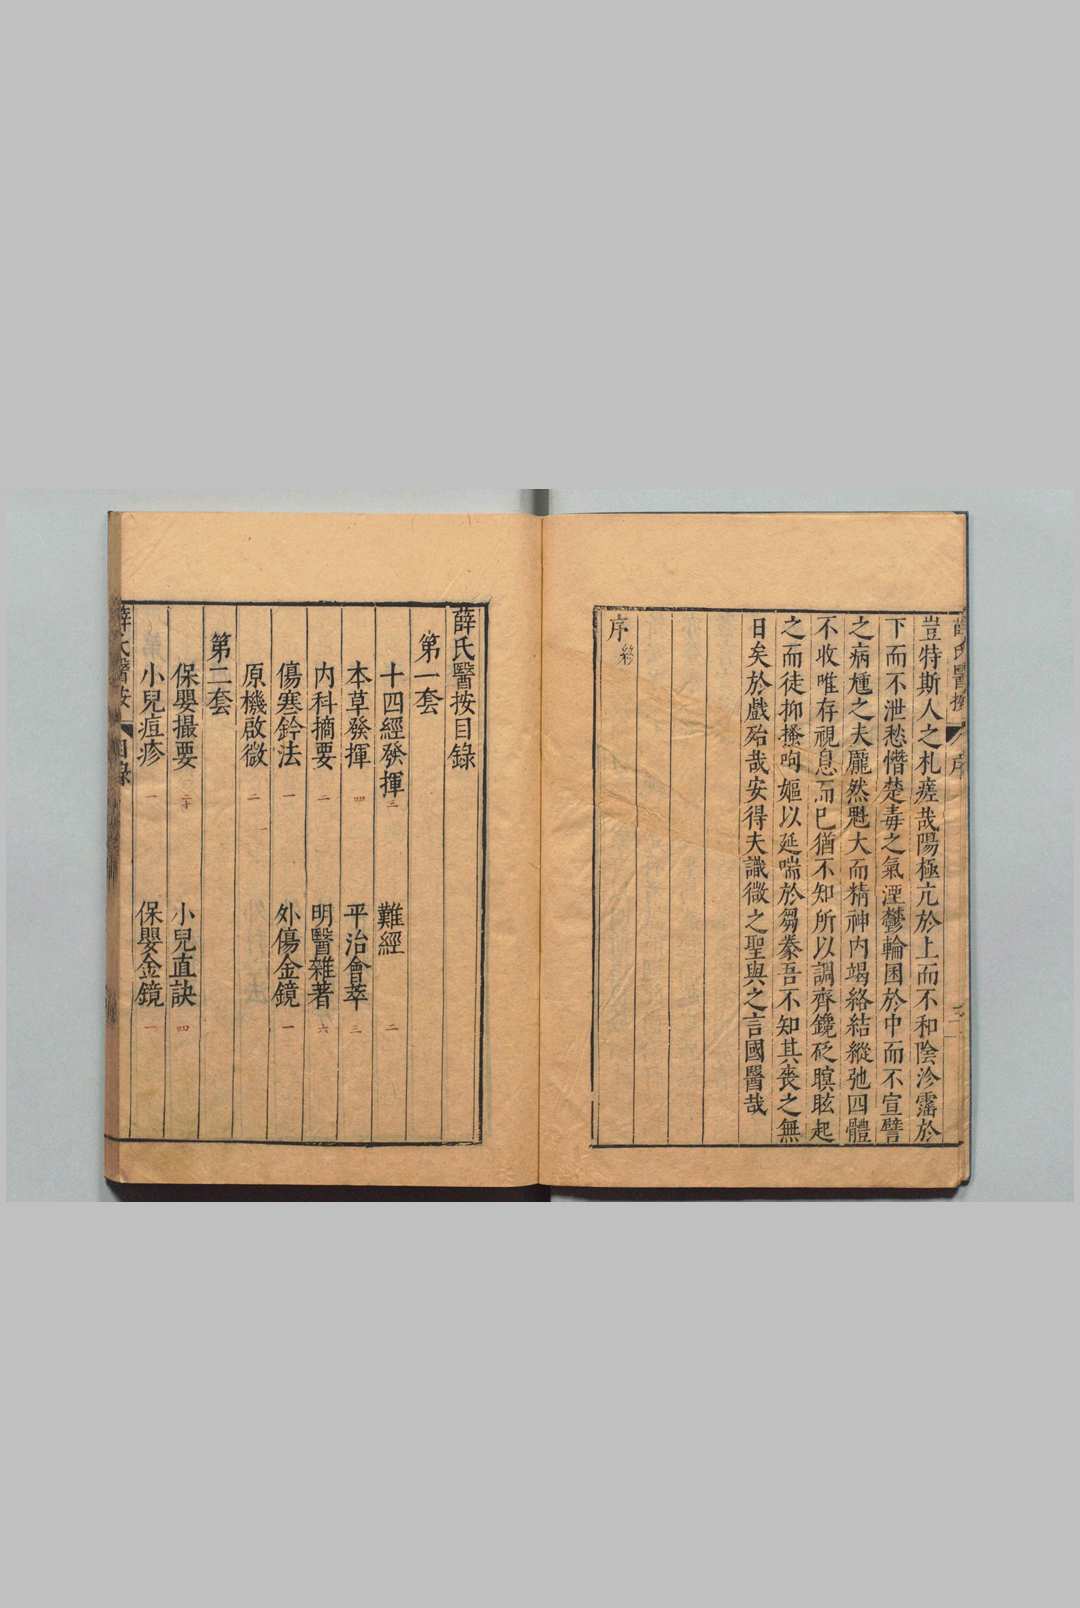 薛氏醫按
序
二
豈特斯人之札瘥哉陽極亢於上而不和陰沴霿於
下而不泄愁憯楚毒之氣湮鬱輪囷於中而不宣譬
之病尰之夫龎然魁大而精神内竭絡結縱弛四體
不收唯存視息而已猶不知所以調齊鑱砭瞑眩起
之而徒抑搔呴嫗以延喘於芻豢吾不知其喪之無
日矣於戲殆哉安得夫識微之聖與之言國醫哉
序終
薛氏醫按目錄
第一套
十四經發揮 三 難經 二
本草發揮 四 平治會萃 三
内科摘要 二 明醫雜著 六
傷寒鈐法 一 外傷金鏡 一
原機啟微 二
第二套
保嬰撮要 二十 小兒直訣 四
小兒痘疹 一 保嬰金鏡 一
薛氏醫按
目錄